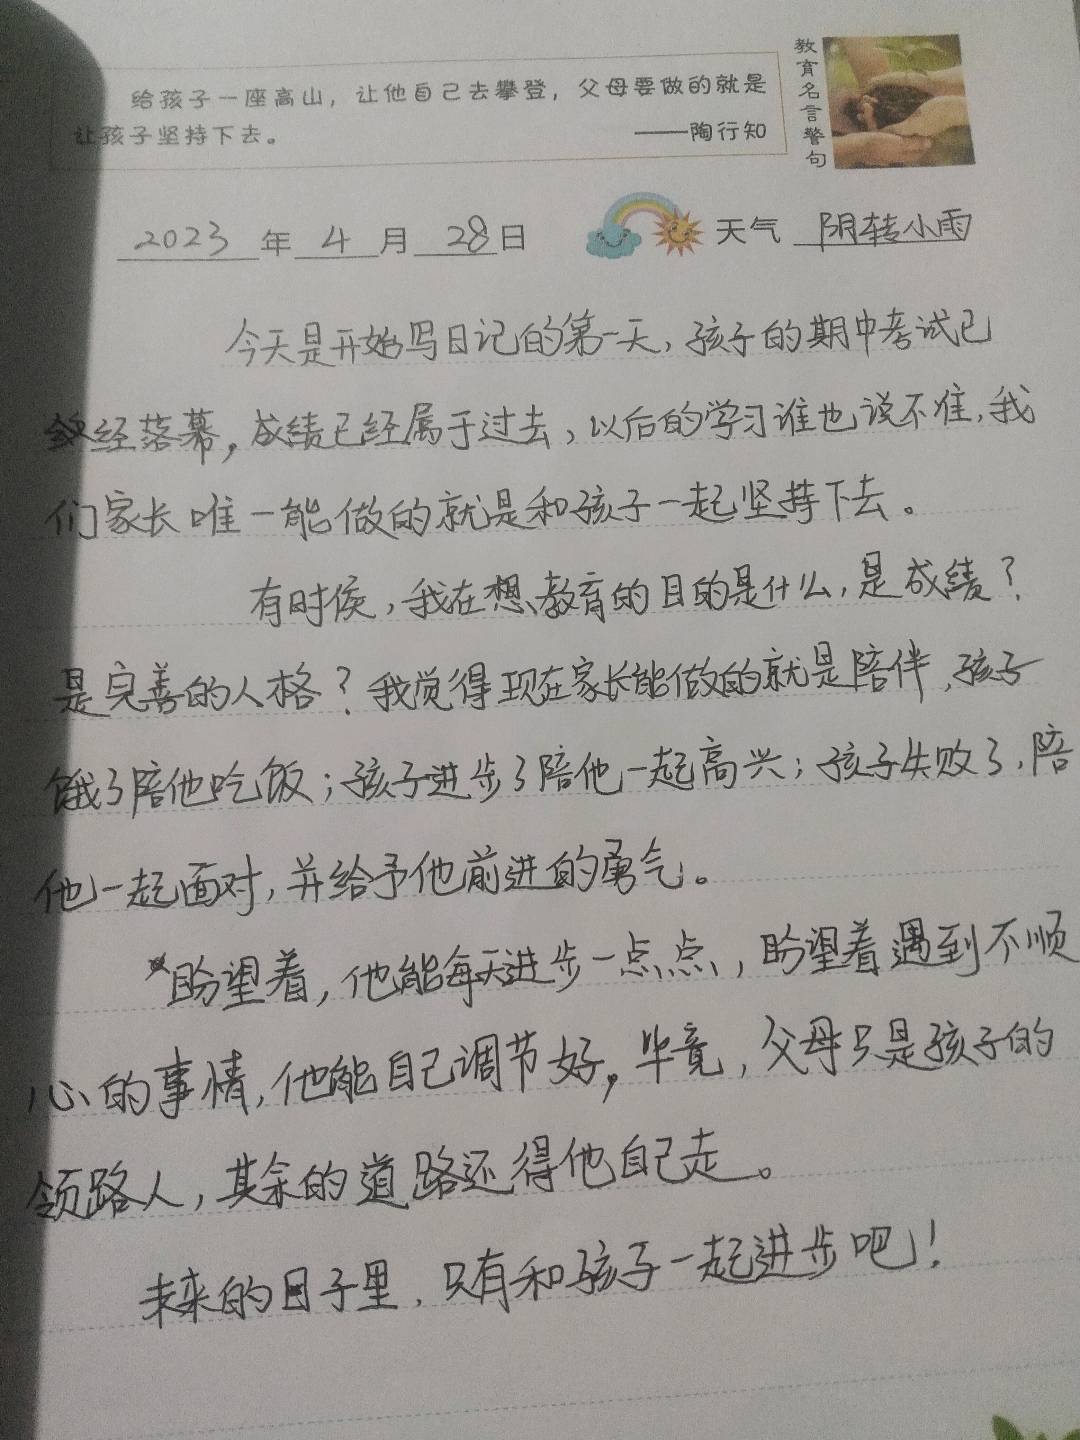 给孩子一座高山，让他自己去攀登，父母要做的就是
让孩子坚持下去。
——陶行知
教育名言警句
2023年4月28日
天气 阴转小雨
今天是开始写日记的第一天，孩子的期中考试已
经落幕，成绩已经属于过去，以后的学习谁也说不准，我
们家长唯一能做的就是和孩子一起坚持下去。
有时候，我在想教育的目的是什么，是成绩？
是完善的人格？我觉得现在家长能做的就是陪伴，孩子
饿了陪他吃饭；孩子进步了陪他一起高兴；孩子失败了，陪
他一起面对，并给予他前进的勇气。
盼望着，他能每天进步一点点，盼望着遇到不顺
心的事情，他能自己调节好，毕竟，父母只是孩子的
领路人，其余的道路还得他自己走。
未来的日子里，只有和孩子一起进步吧！